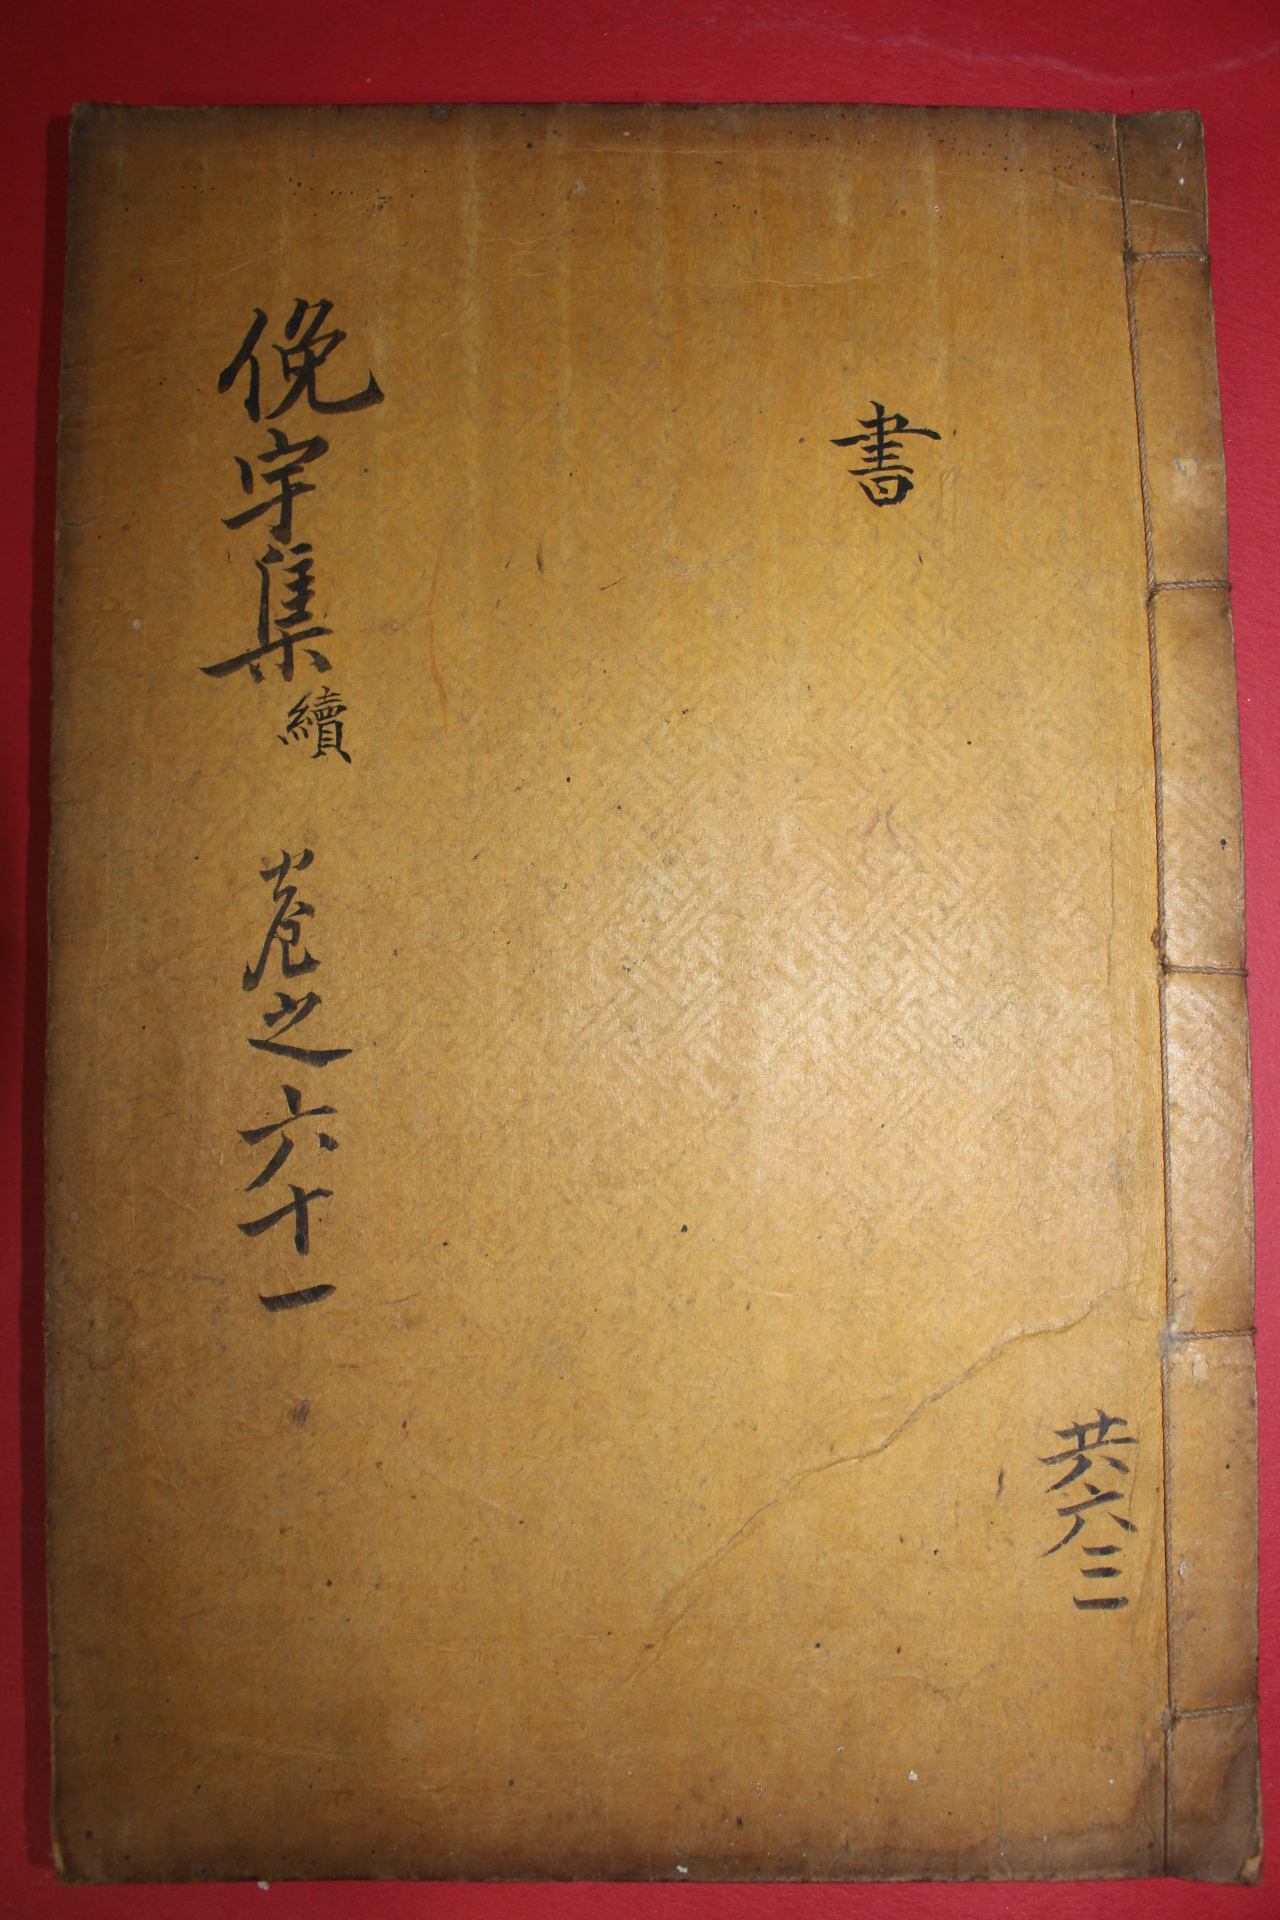 書
共六三
俛宇集 續 卷之六十一